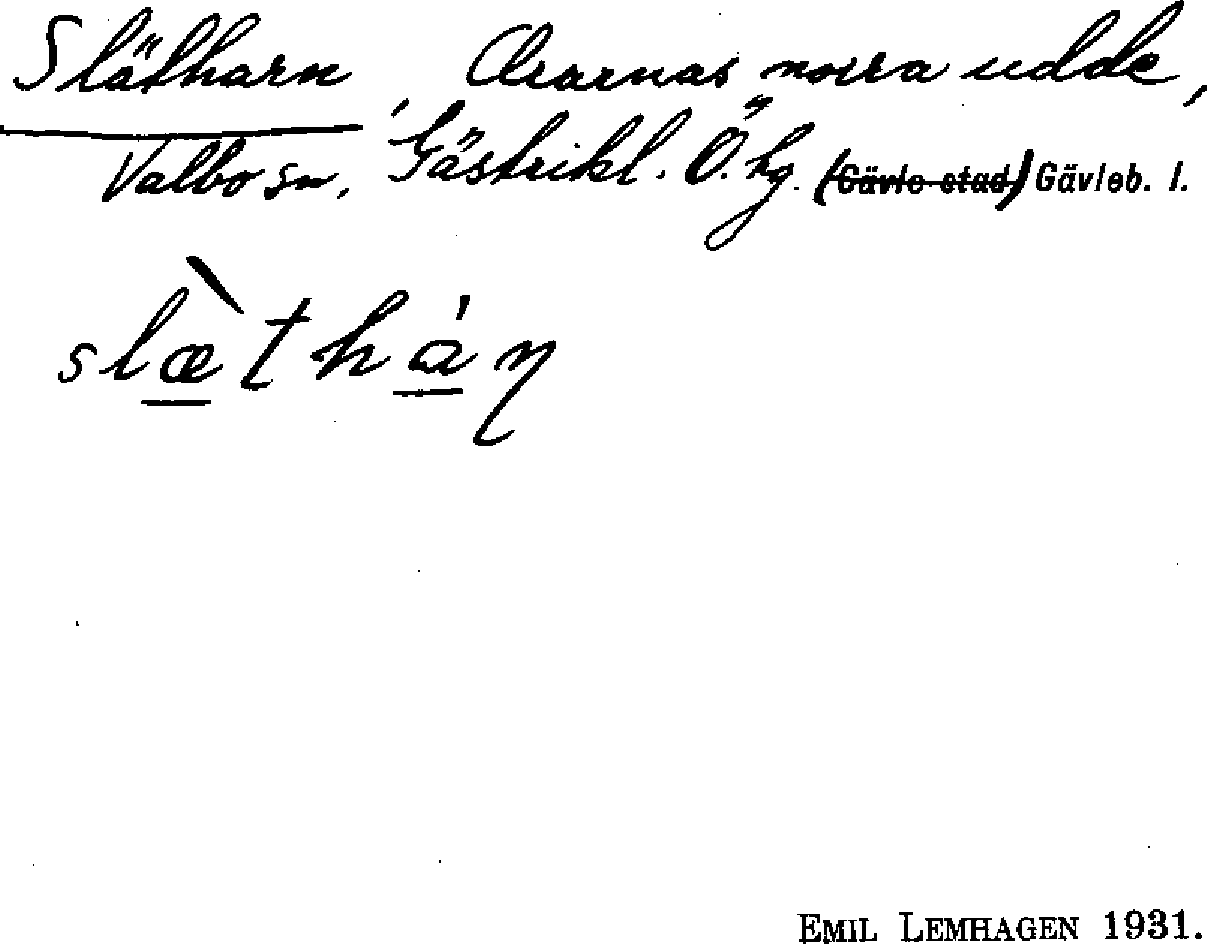 Slätharn, Orarnas norra udde,
Valbo sn, Gästrikl. Ö. hg. (Gävle stad) Gävleb. l.
slæ̀thán
EMIL LEMHAGEN 1931.